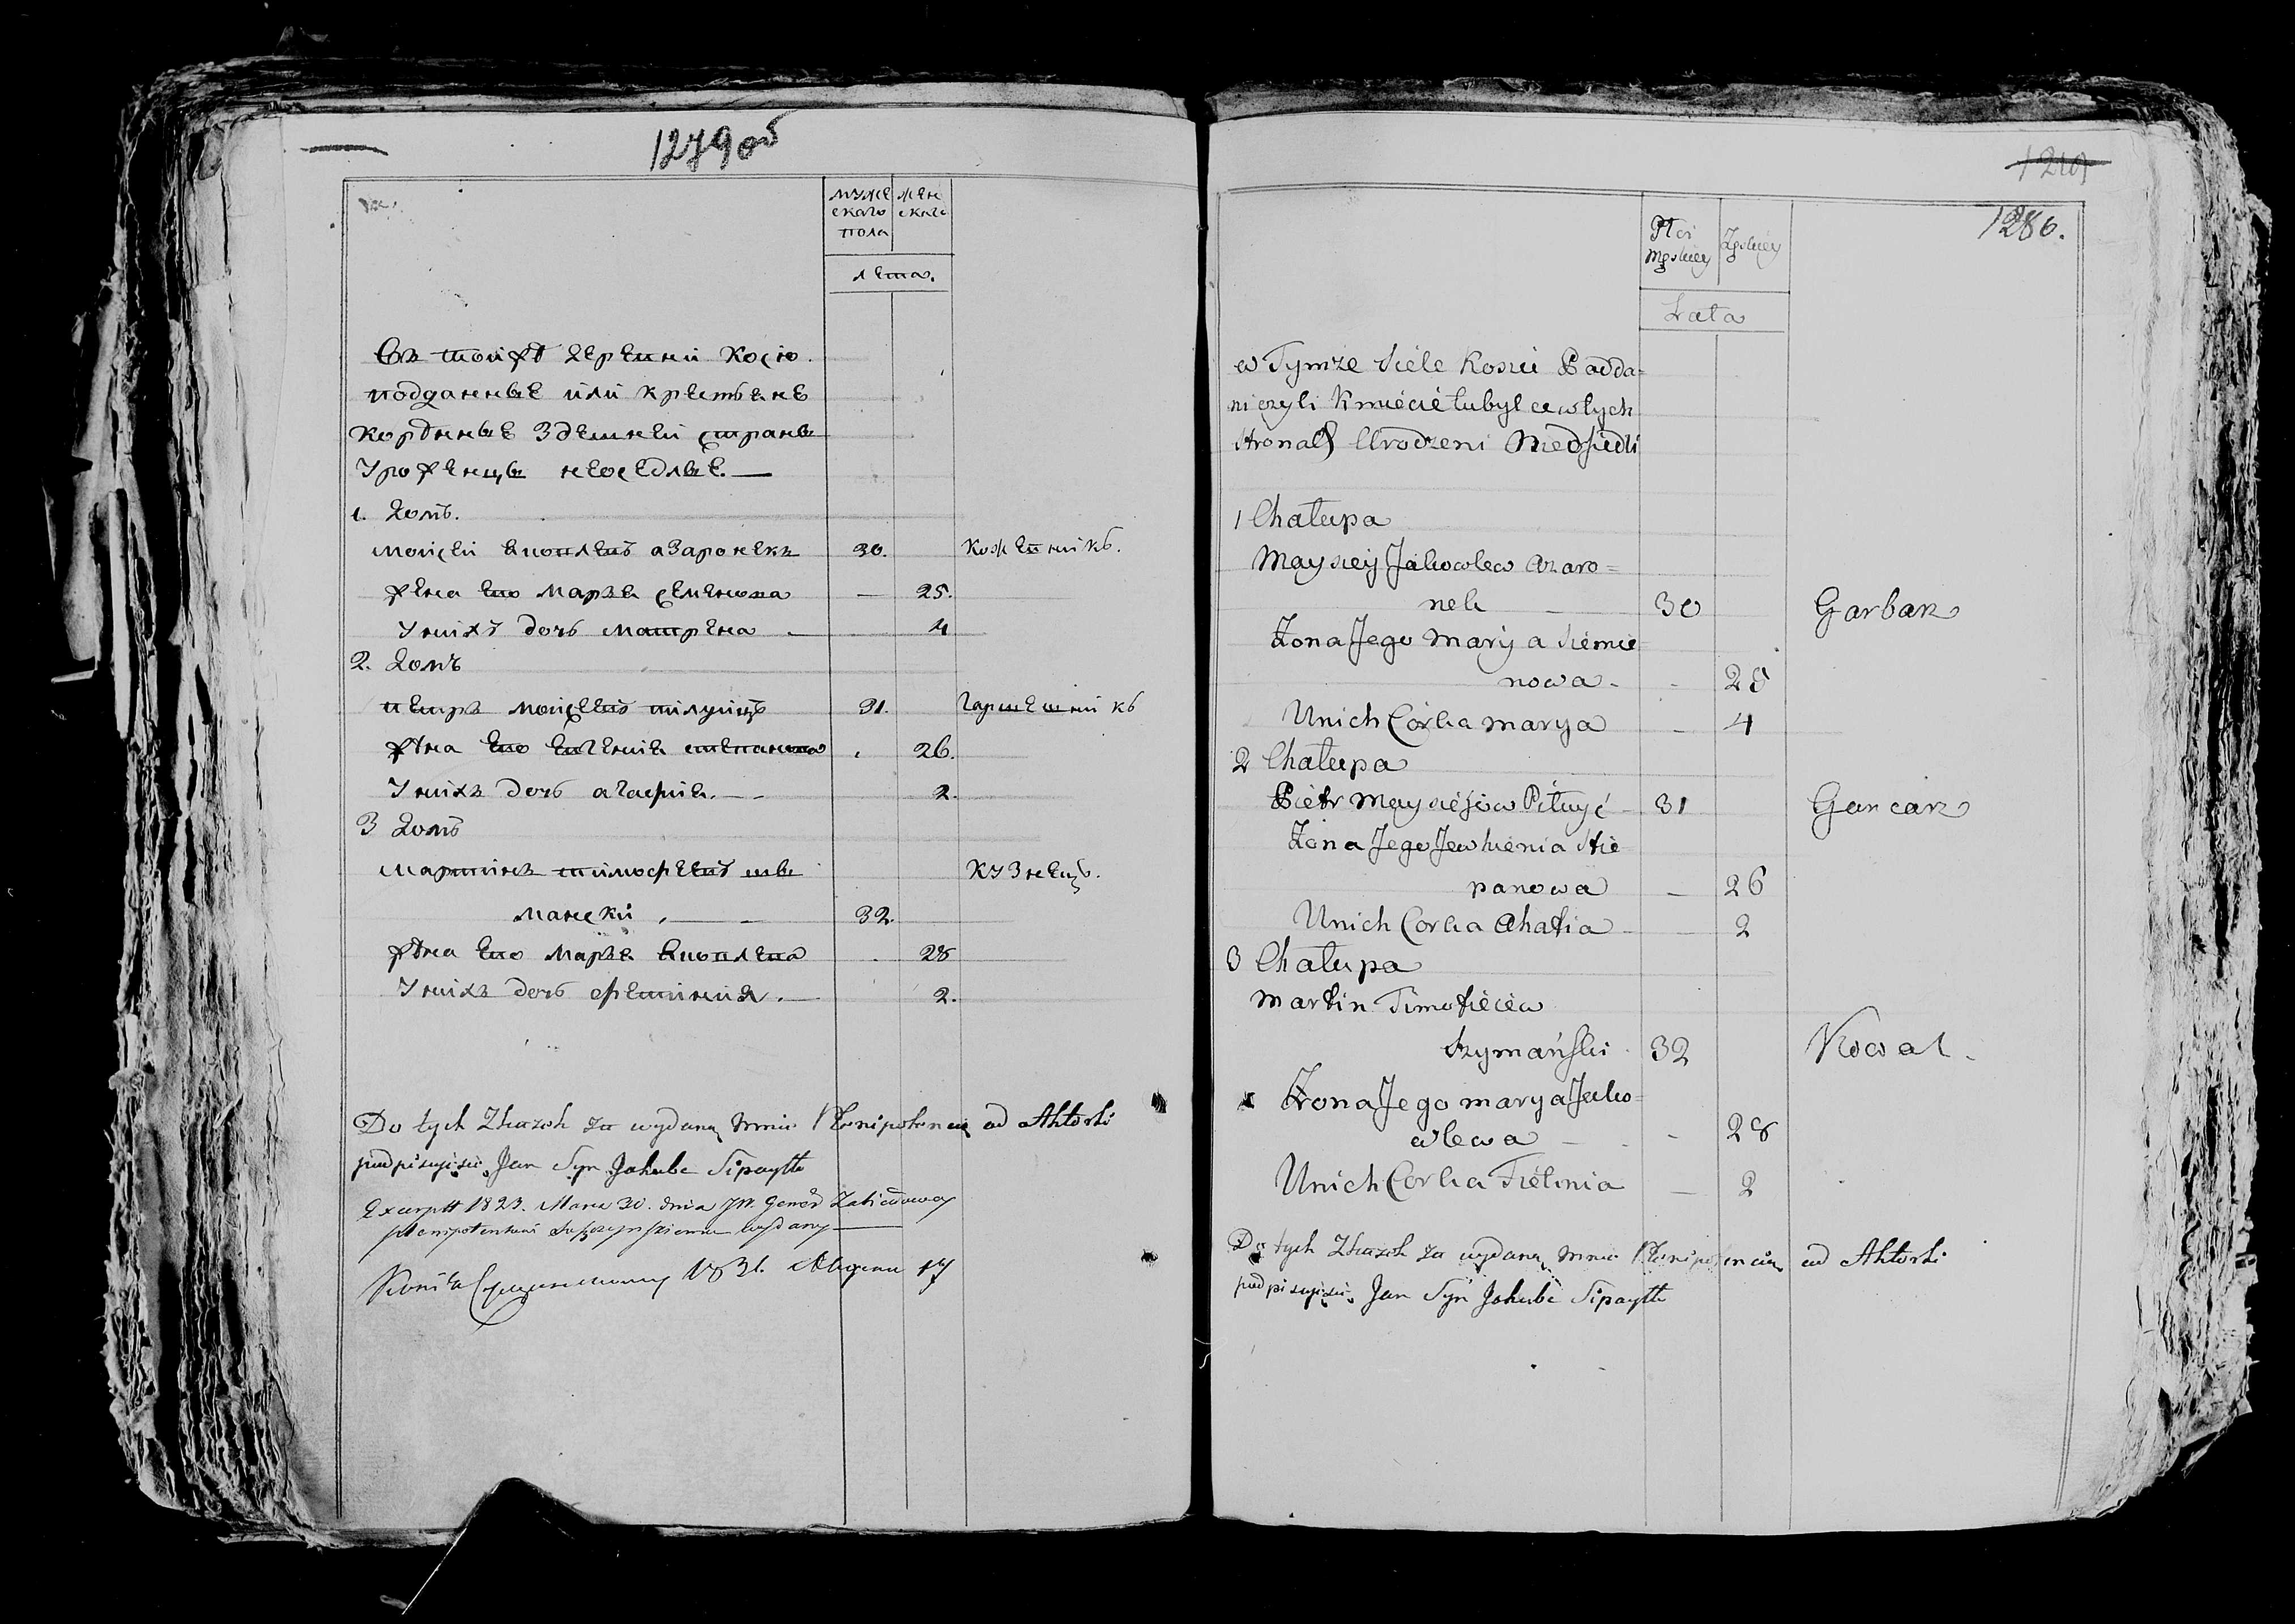 1279 об
муже
ского
пола
жен
скаго
лета.
Въ тойжъ деревни Косю
подданные или крестьяне
корѣнные здешней страны
уроженцы неоседлые.
1. домъ.
Мойсей яковлевъ азаронекъ 30. кожевникъ.
жена ево Марья семенова — 25.
У нихъ дочь матрена 4
2. домъ
петръ мойсеевъ пилуицъ 31. гаршешникъ
жѣна ево евгения степанова 26.
У нихъ дочь агафия. 2.
3 домъ
мартинъ тимофеевъ ши кузнецъ.
манский 32.
жѣна ево марья яковлева 28
У нихъ дочь фетиния. 2.
Do tych Zkazok za wydaną mnie Plenipotencią od Aktorki
podpisuię się Jan Syn Jakuba
Excerptt 1823. Marca 30. dnia JW. Generd
plenipotentowi wydany
1831. 17
1210
1286.
Płci
Męskiey
Żęskiey
Lata
w Tymże Siele Kosiu Podda=
ni czyli Kmiecie tubylce w tych
stronach Urodzeni Nieosiedli
1 Chałupa
Maysiey Jakowlew Azaro=
nek 30 Garbarz
Żona Jego Marya Siemie
nowa - - 25
U nich Córka Marya - 4
2 Chałupa
Piétr Maysiejew Piłuyć 31 Garcarz
Żona Jego Jewhienia Stie
panowa — 26
U nich Corka Ahafia — 2
3 Chałupa
Martin Timofieiew
Szymański 32 Kowal.
Żona Jego Marya Jako=
wlewa - 28
U nich Corka Fietinia — 2
Do tych Zkazok za wydaną mnie Plenipotencią od Aktorki
podpisuię się Jan Syn Jakuba